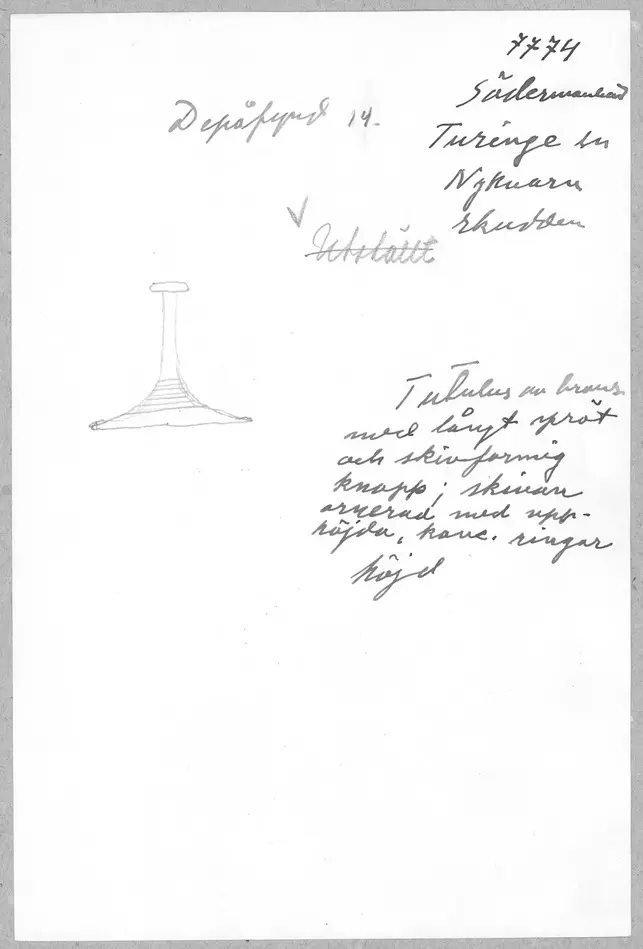 7774
Södermanland
Depåfynd 14.
Turinge sn
Nykvarn
skudden
Utställt
Tutulus av brons
med långt spröt
och skivformig
knapp; skivan
ornerad med upp-
höjda, konc. ringar
höjd